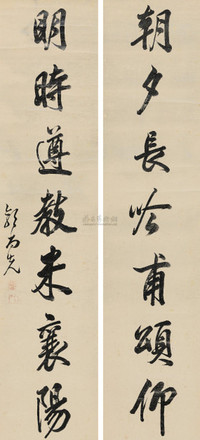 朝夕長吟甫頌仰
明時遵教米襄陽
郭尚先